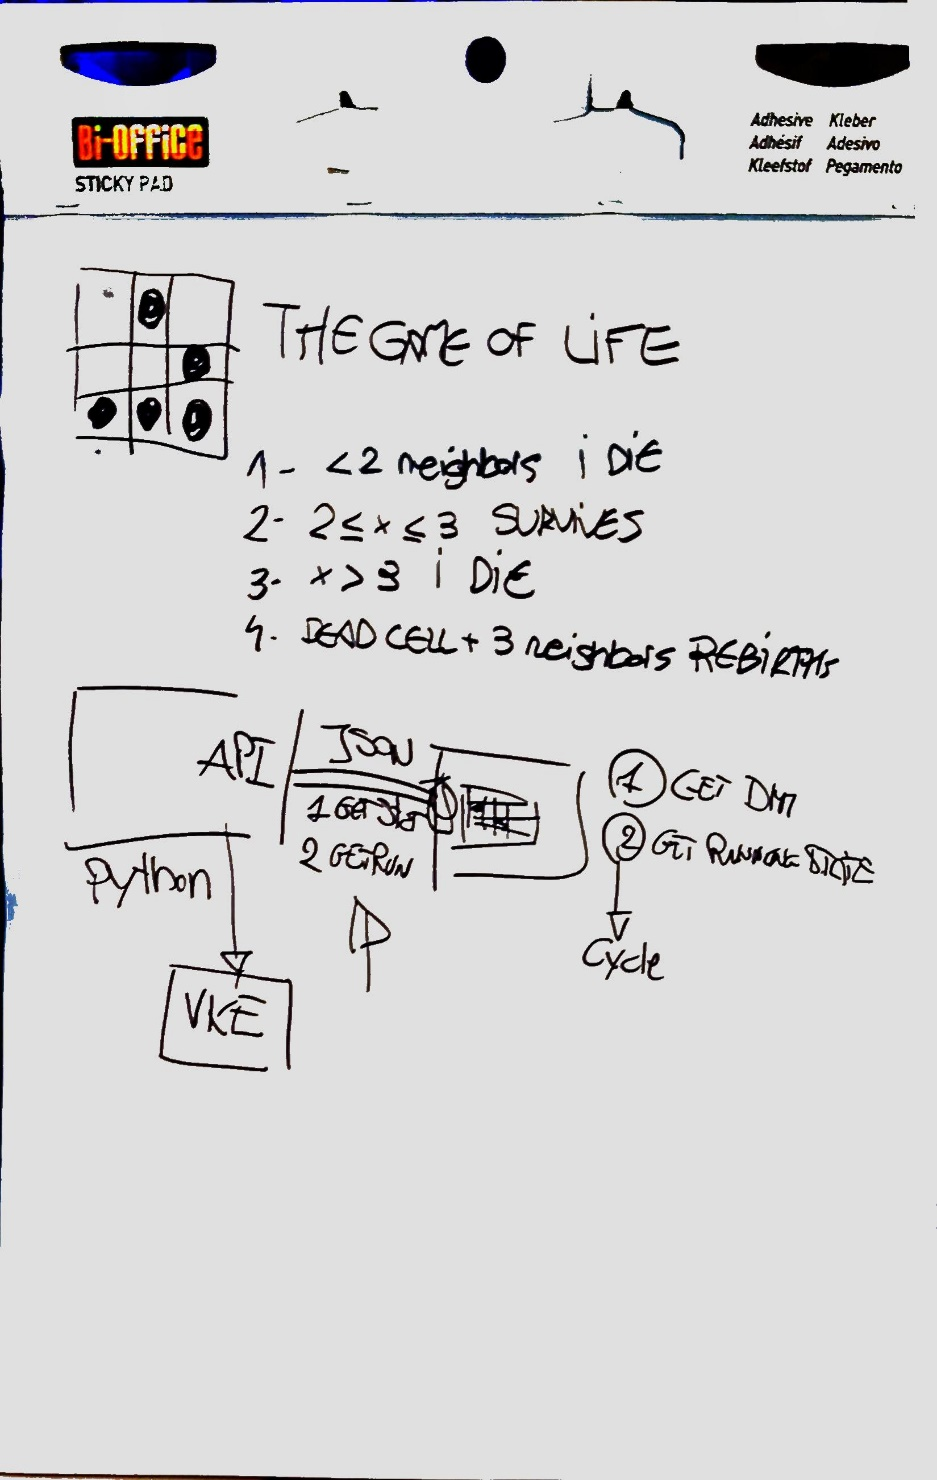 Bi-OFFiCE
STICKY PAD
Adhesive Kleber
Adhésif Adesivo
Kleefstof Pegamento
THE GAME OF LiFE
1- <2 neighbors i DiE
2- 2≤x≤3 SURViVES
3- x>3 i DiE
4- DEAD CELL + 3 neighbors REBiRTHS
API
JSON
1 GET
2 GET RUN
1 GET
2 GET RUNNING STATE
Python
Cycle
VKE